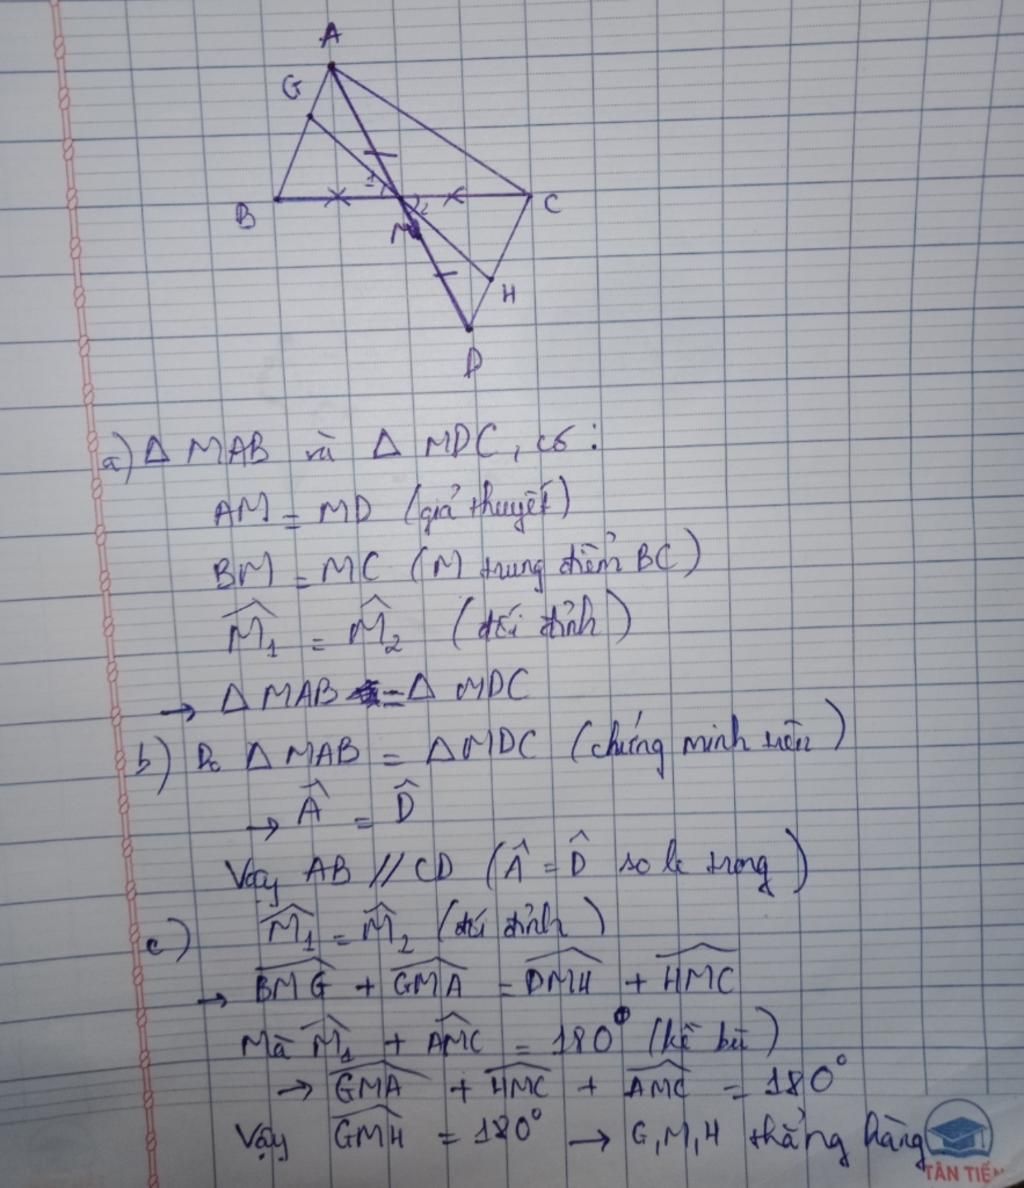 A
G
1
B
C
2
M
H
D
a) Δ MAB và Δ MDC, có:
AM = MD (giả thuyết)
BM = MC (M trung điểm BC)
M̂₁ = M̂₂ (đối đỉnh)
→ Δ MAB = Δ MDC
b) Do Δ MAB = Δ MDC (chứng minh trên)
→ Â = D̂
Vậy AB // CD (Â = D̂ so le trong)
c) M̂₁ = M̂₂ (đối đỉnh)
→ BMĜ + GMÂ = DMĤ + HMĈ
Mà M̂₁ + AMĈ = 180° (kề bù)
→ GMÂ + HMĈ + AMĈ = 180°
Vậy GMĤ = 180° → G, M, H thẳng hàng
TÂN TIẾN